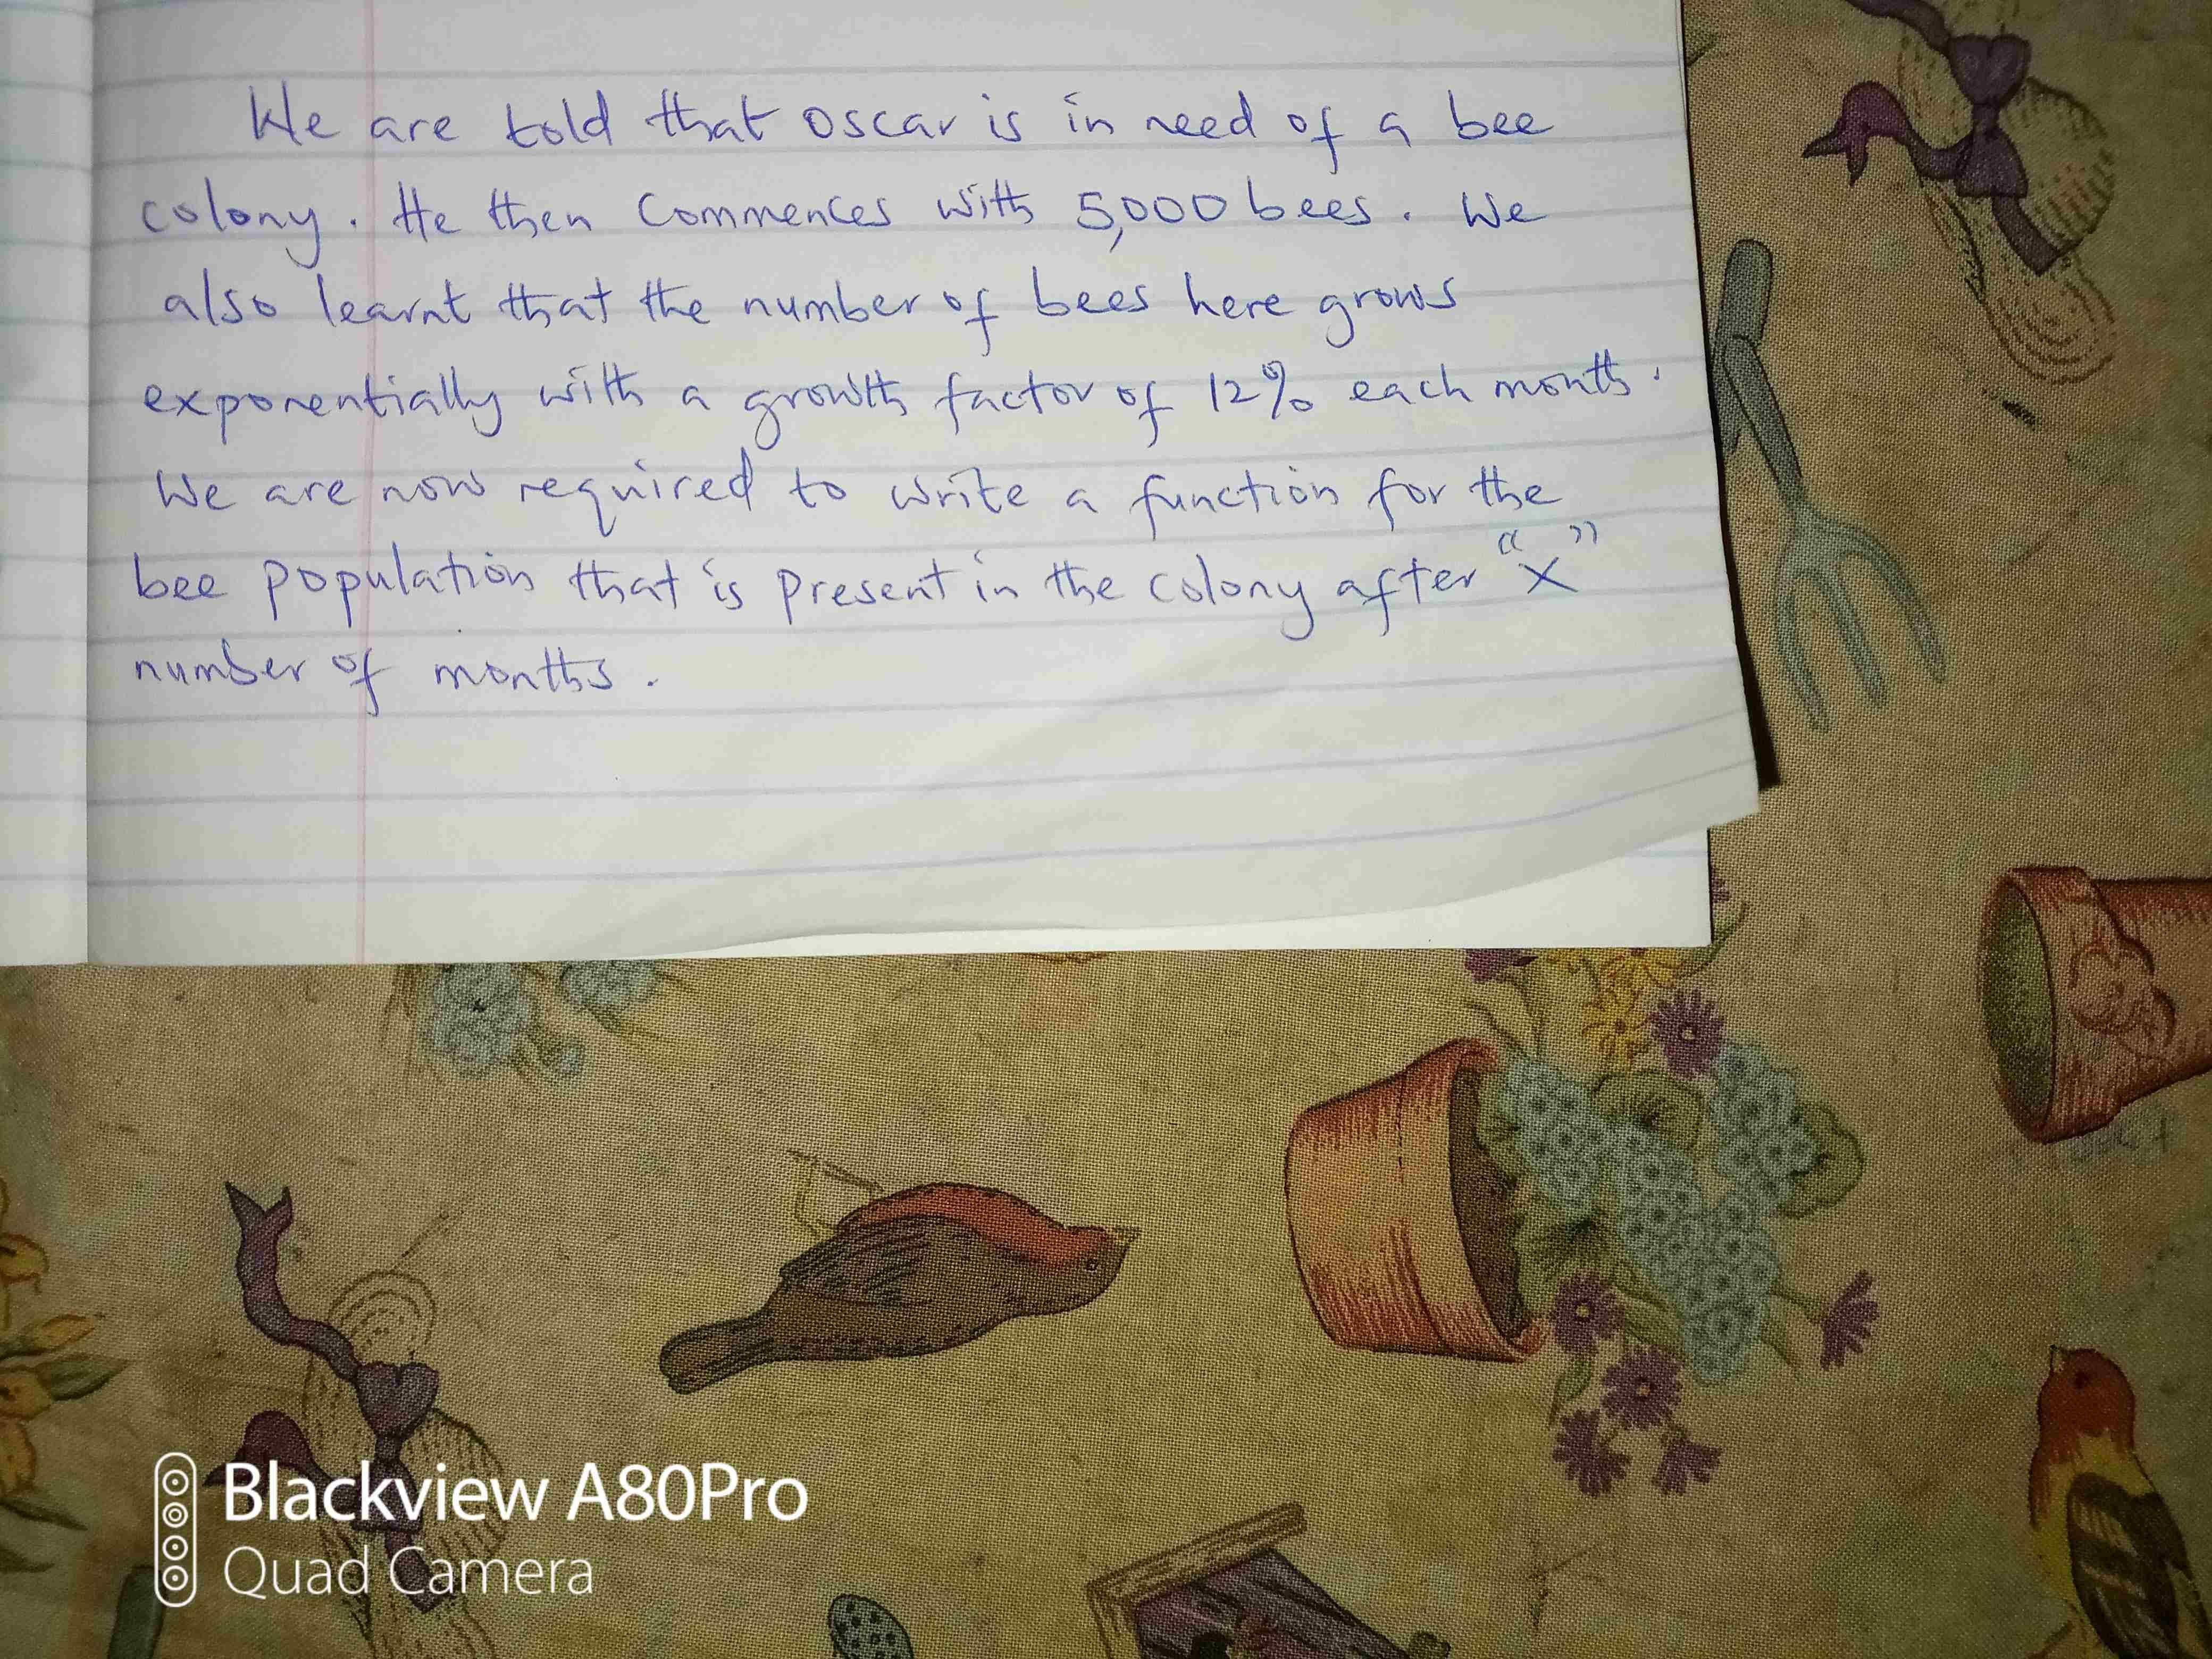 We are told that oscar is in need of a bee
colony. He then commences with 5,000 bees. We
also learnt that the number of bees here grows
exponentially with a growth factor of 12% each month.
We are now required to write a function for the
bee population that is present in the colony after "x"
number of months.
Blackview A80Pro
Quad Camera